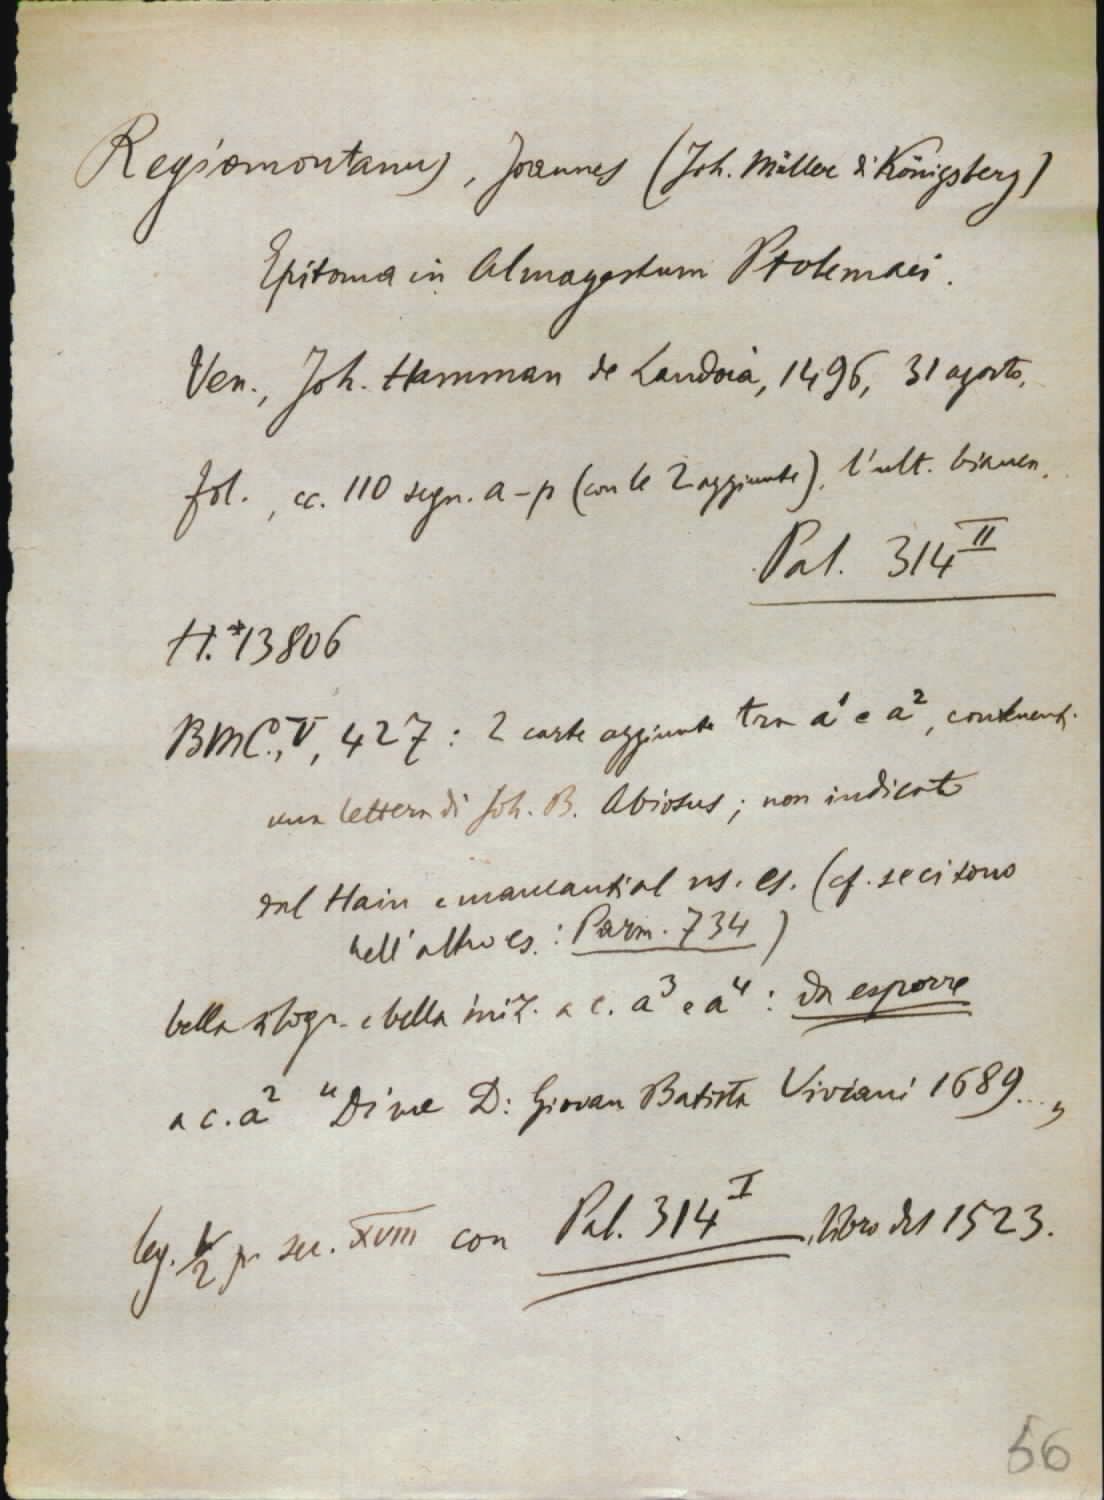 Regiomontanus, Joannes (Joh. Müller di Königsberg)
Epitoma in Almagestum Ptolemaei.
Ven., Joh. Hamman de Landoia, 1496, 31 agosto,
fol., cc. 110 segn. a-p (con le 2 aggiunte), l'ult. bianca.
Pal. 314 II
H.*13806
BMC., V, 427: 2 carte aggiunte tra a1 e a2, contenenti
una lettera di Joh. B. Abiosus; non indicate
dal Hain e mancanti al ns. es. (cf. se ci sono
nell'altro es.: Parm. 734)
bella xilogr. e bella iniz. a c. a3 e a4: da esporre
a c. a2 "Di me D: Giovan Batista Viviani 1689...„
leg. 1/2 p. sec. XVIII con Pal. 314 I, libro del 1523.
56